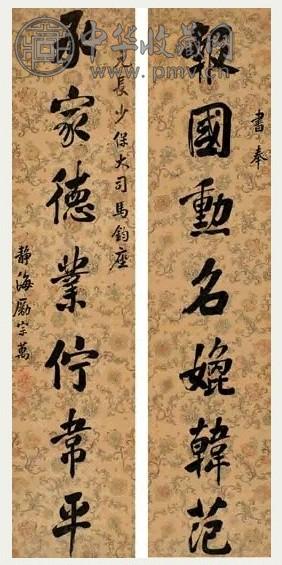 中华收藏网
www.pmv.cn
書奉
報國勳名媲韓范
元長少保大司馬鈞座
承家德業佇韋平
靜海勵宗萬